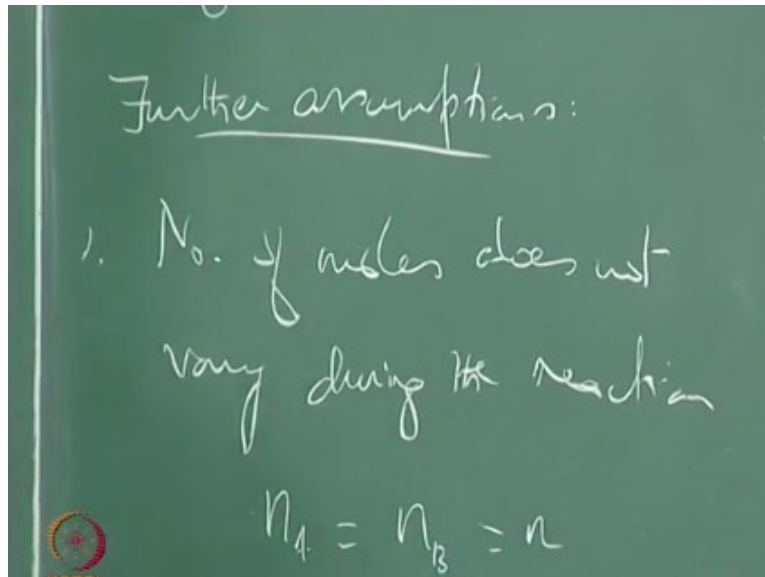 Further assumptions:
1. No. of moles does not
vary during the reaction
n_A = n_B = n